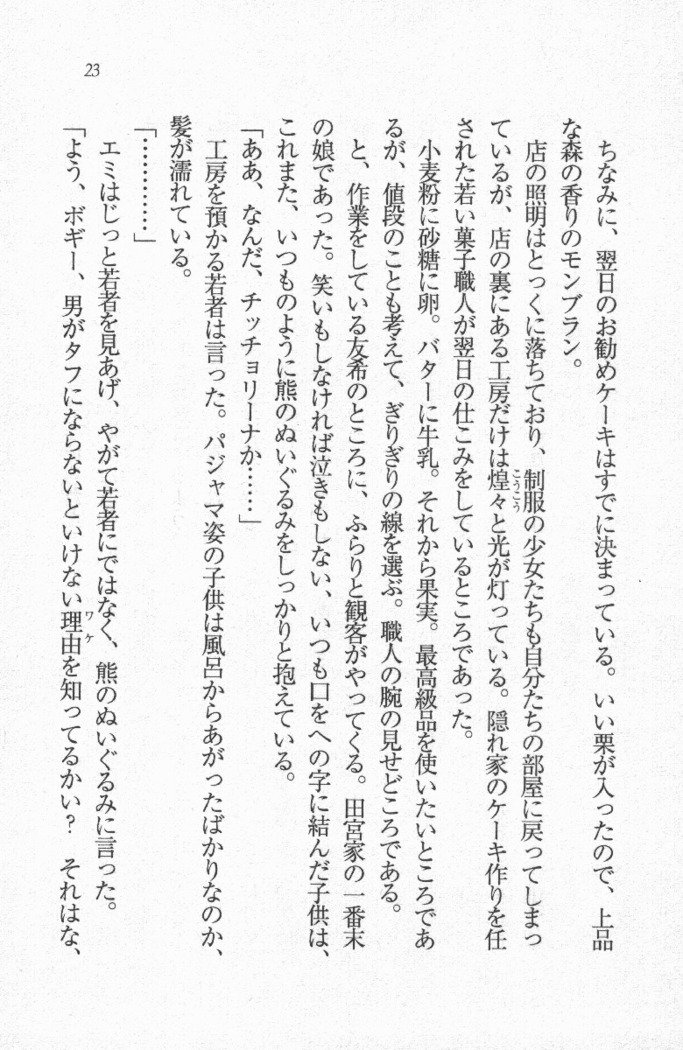 23
ちなみに、翌日のお勧めケーキはすでに決まっている。いい栗が入ったので、上品
な森の香りのモンブラン。
店の照明はとっくに落ちており、制服の少女たちも自分たちの部屋に戻ってしまっ
ているが、店の裏にある工房だけは煌々と光が灯っている。隠れ家のケーキ作りを任
こうこう
された若い菓子職人が翌日の仕こみをしているところであった。
小麦粉に砂糖に卵。バターに牛乳。それから果実。最高級品を使いたいところであ
るが、値段のことも考えて、ぎりぎりの線を選ぶ。職人の腕の見せどころである。
と、作業をしている友希のところに、ふらりと観客がやってくる。田宮家の一番末
の娘であった。笑いもしなければ泣きもしない、いつも口をへの字に結んだ子供は、
これまた、いつものように熊のぬいぐるみをしっかりと抱えている。
「ああ、なんだ、チッチョリーナか……」
工房を預かる若者は言った。パジャマ姿の子供は風呂からあがったばかりなのか、
髪が濡れている。
「…………」
エミはじっと若者を見あげ、やがて若者にではなく、熊のぬいぐるみに言った。
「よう、ボギー、男がタフにならないといけない理由を知ってるかい？　それはな、
ワケ